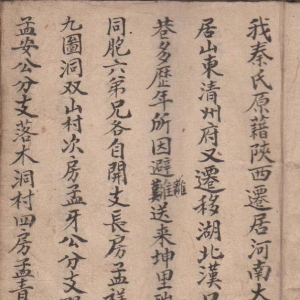 我秦氏原藉陝西遷居河南大
居山東清州府又遷移湖北漢口
巷多歷年所因避難難送来坤里
同胞六弟兄各自開支長房孟祥
九圖洞双山村次房孟牙公分支
孟安公分支落木洞村四房孟青